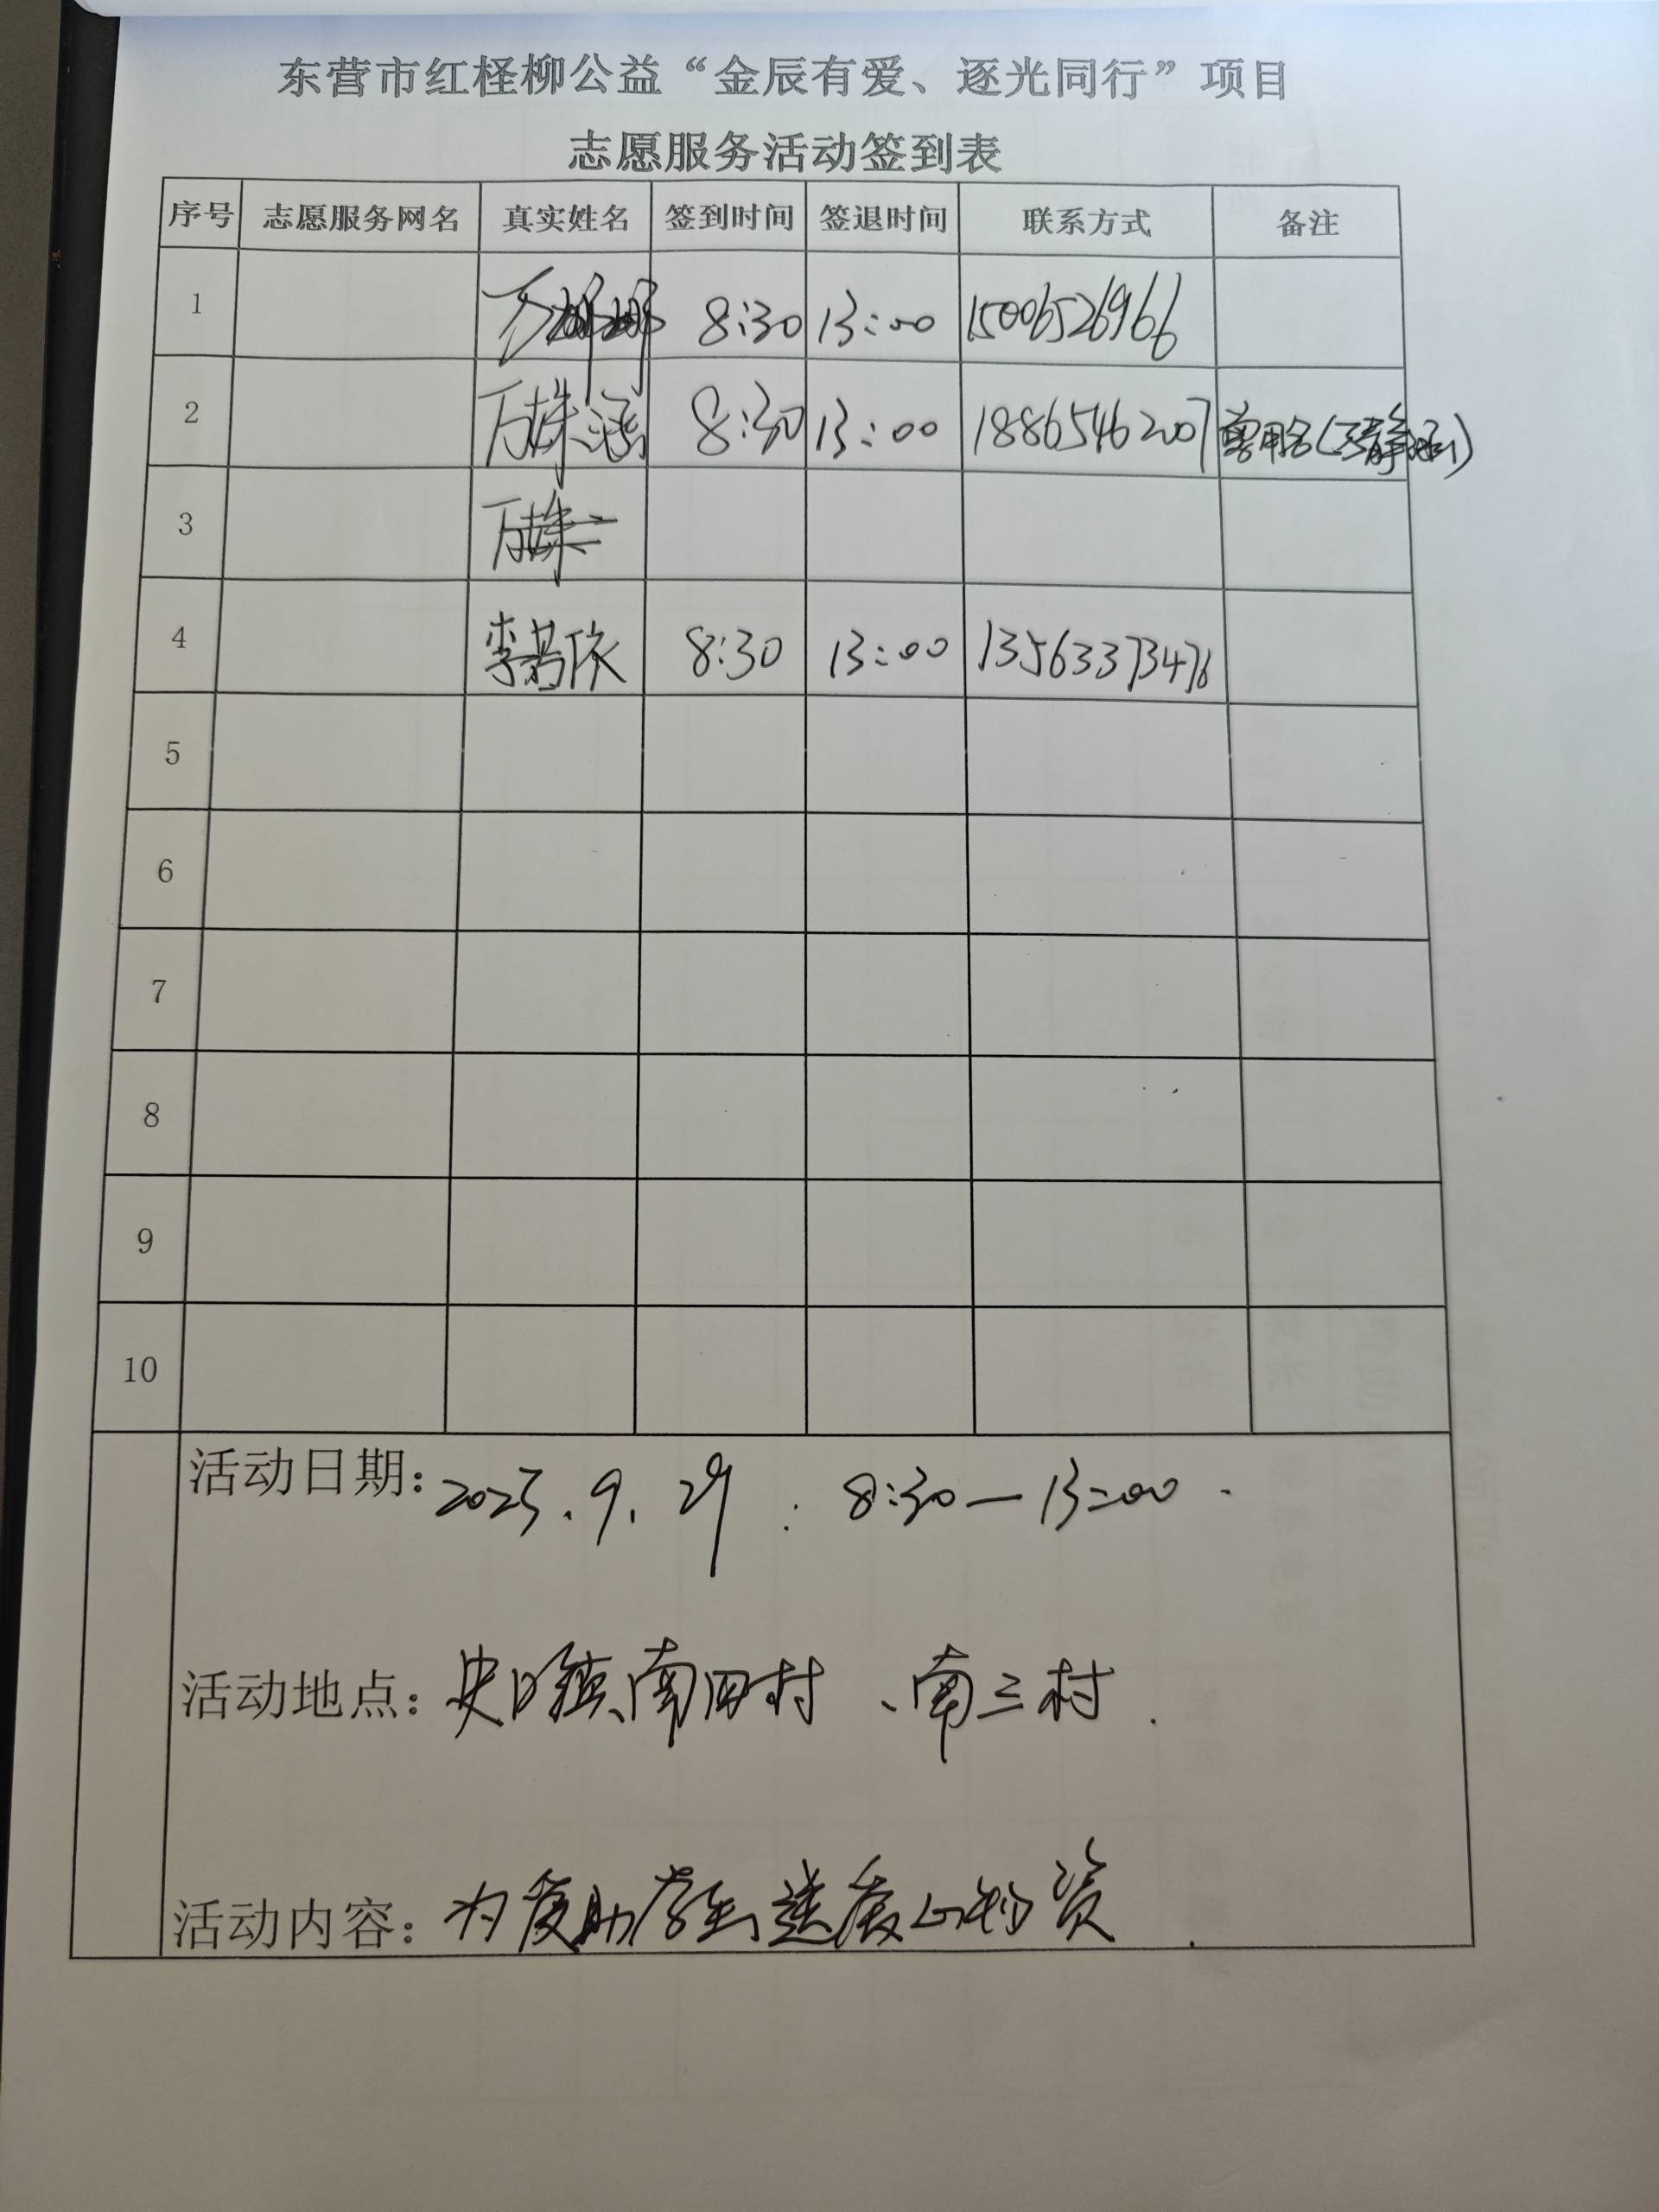 东营市红柽柳公益“金辰有爱、逐光同行”项目
志愿服务活动签到表
序号 志愿服务网名 真实姓名 签到时间 签退时间 联系方式 备注
1 万娜娜 8:30 13:00 15006526966
2 万姝涵 8:30 13:00 18865462007 曾用名(万静涵)
3 万姝
4 李若依 8:30 13:00 13563373476
5
6
7
8
9
10
活动日期: 2025.9.29 : 8:30—13:00.
活动地点: 史口镇南四村、南三村.
活动内容: 为受助学生送爱心物资.